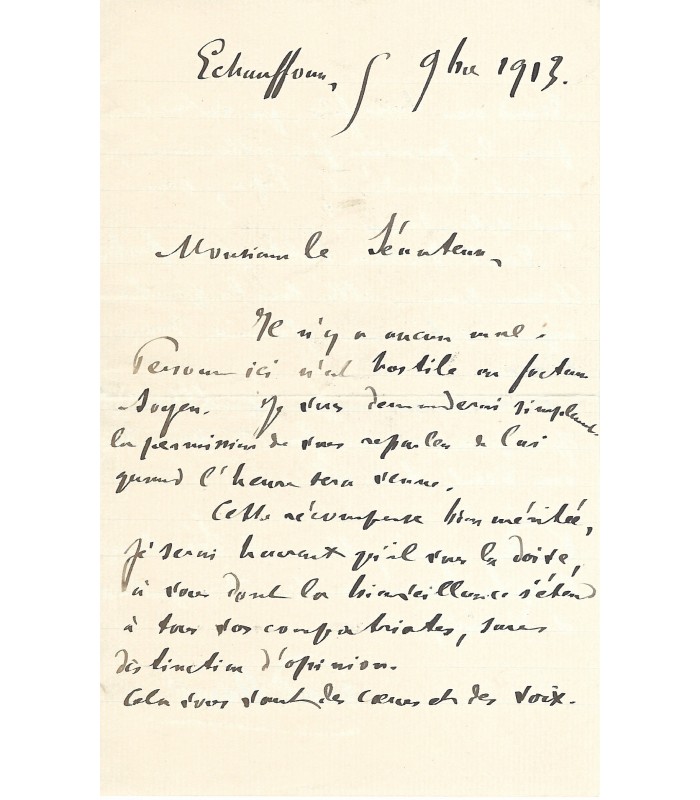 Echauffour, 5 9bre 1913.
Monsieur le Sénateur,
Il n'y a aucun mal :
Personne ici n'est hostile au facteur
Soyer. Je vous demanderai simplement
la permission de vous reparler de lui
quand l'heure sera venue.
Cette récompense bien méritée,
je serai heureux qu'il vous la doive,
à vous dont la bienveillance s'étend
à tous vos compatriotes, sans
distinction d'opinion.
Cela vous vaut des cœurs et des voix.